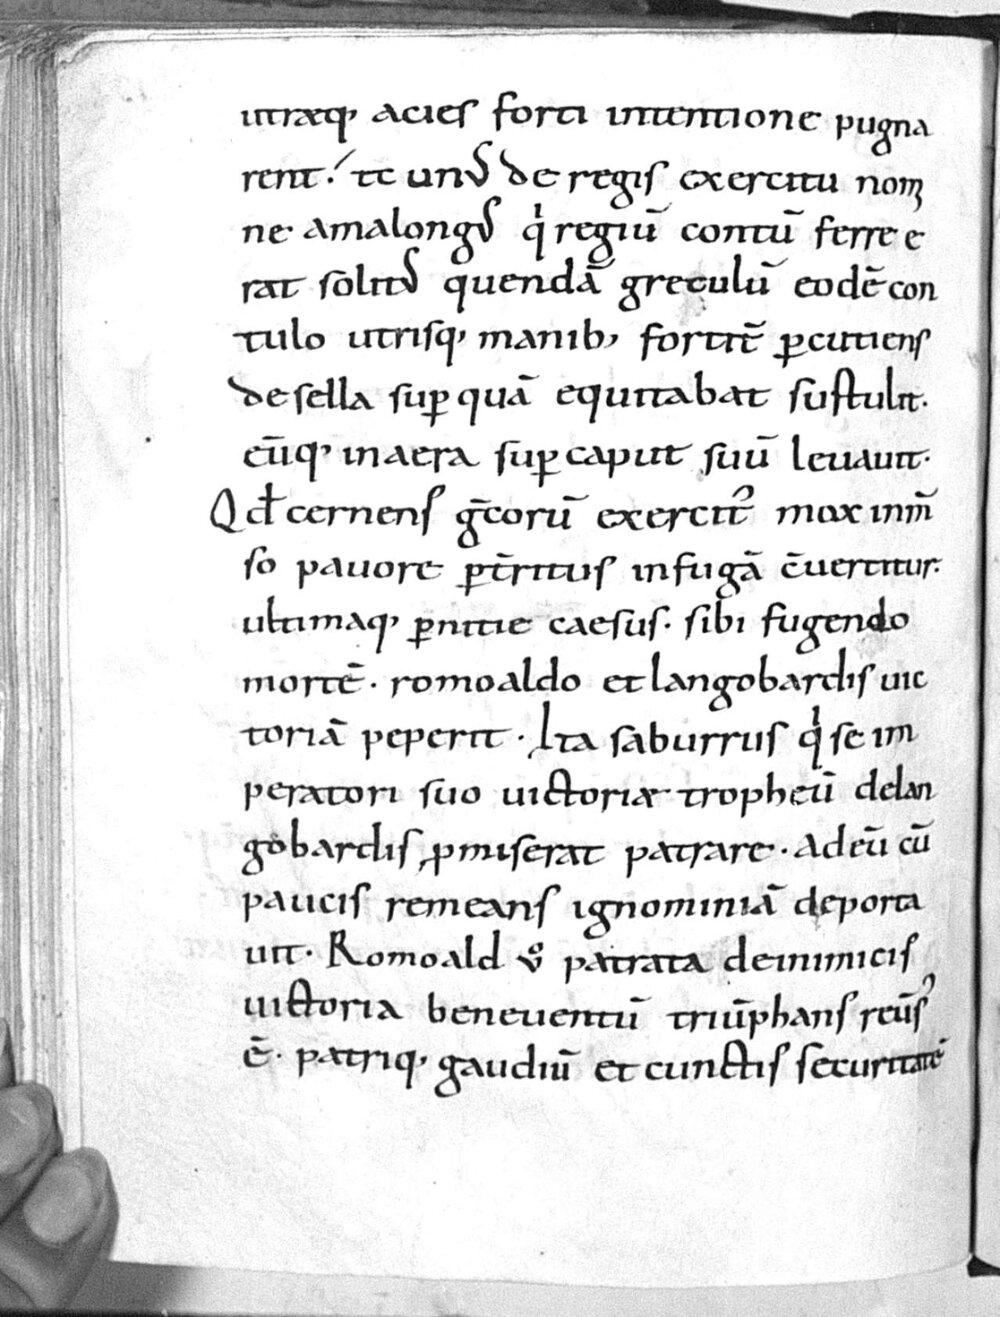 utraq; acies forti intentione pugna
rent. tc unus de regis exercitu nom
ne amalongus qͥ regiū contū ferre e
rat solitus quendā gręculū eodē con
tulo utrisq; manib; fortit̄ ꝑcutiens
de sella suꝑ quā equitabat sustulit.
eūq; in aera suꝑ caput suū leuauit.
Qđ cernens g̅coru̅ exercit᾿ mox inm̄
so pauore ꝑt̄ritus in fugā c̄uertitur.
ultimaq; ꝑnitie caesus. sibi fugendo
mortē. romoaldo et langobardis uic
toriā peperit. Ita saburrus qͥ se im
peratori suo uictoriæ tropheū de lan
gobardis ꝓmiserat patrare. Ad eū cū
paucis remeans ignominiā deporta
uit. Romoald ṽ patrata de inimicis
uictoria beneuentū triūphans reūs᾿
ē. patriq; gaudiū et cunctis securitatē